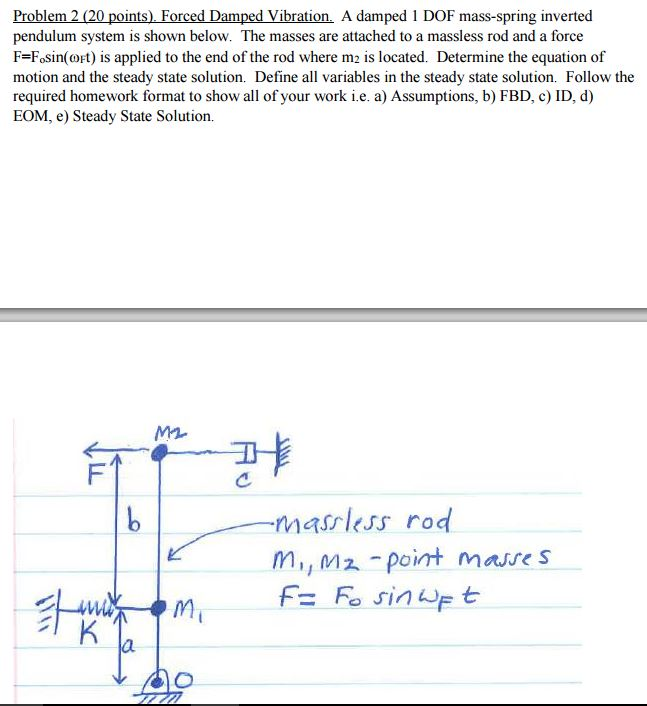 Problem 2 (20 points). Forced Damped Vibration. A damped 1 DOF mass-spring inverted
pendulum system is shown below. The masses are attached to a massless rod and a force
F=Fₒsin(ωFt) is applied to the end of the rod where m₂ is located. Determine the equation of
motion and the steady state solution. Define all variables in the steady state solution. Follow the
required homework format to show all of your work i.e. a) Assumptions, b) FBD, c) ID, d)
EOM, e) Steady State Solution.
M₂
F
C
b
massless rod
M₁, M₂ - point masses
F = F₀ sin ωF t
M₁
K
a
O